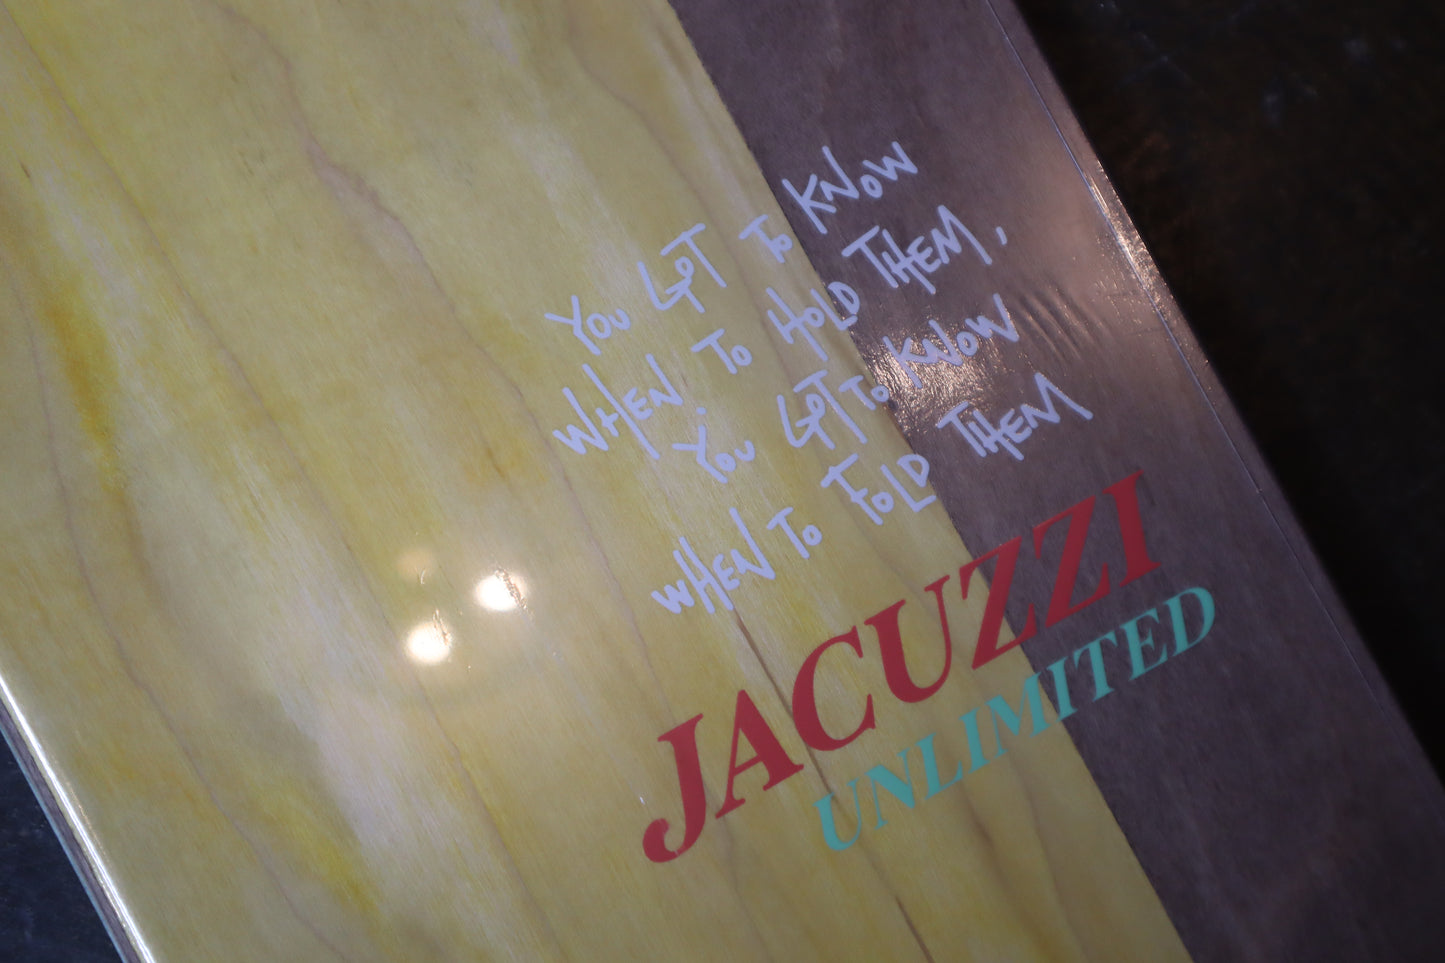 YOU GOT TO KNOW
WHEN TO HOLD THEM,
YOU GOT TO KNOW
WHEN TO FOLD THEM
JACUZZI
UNLIMITED